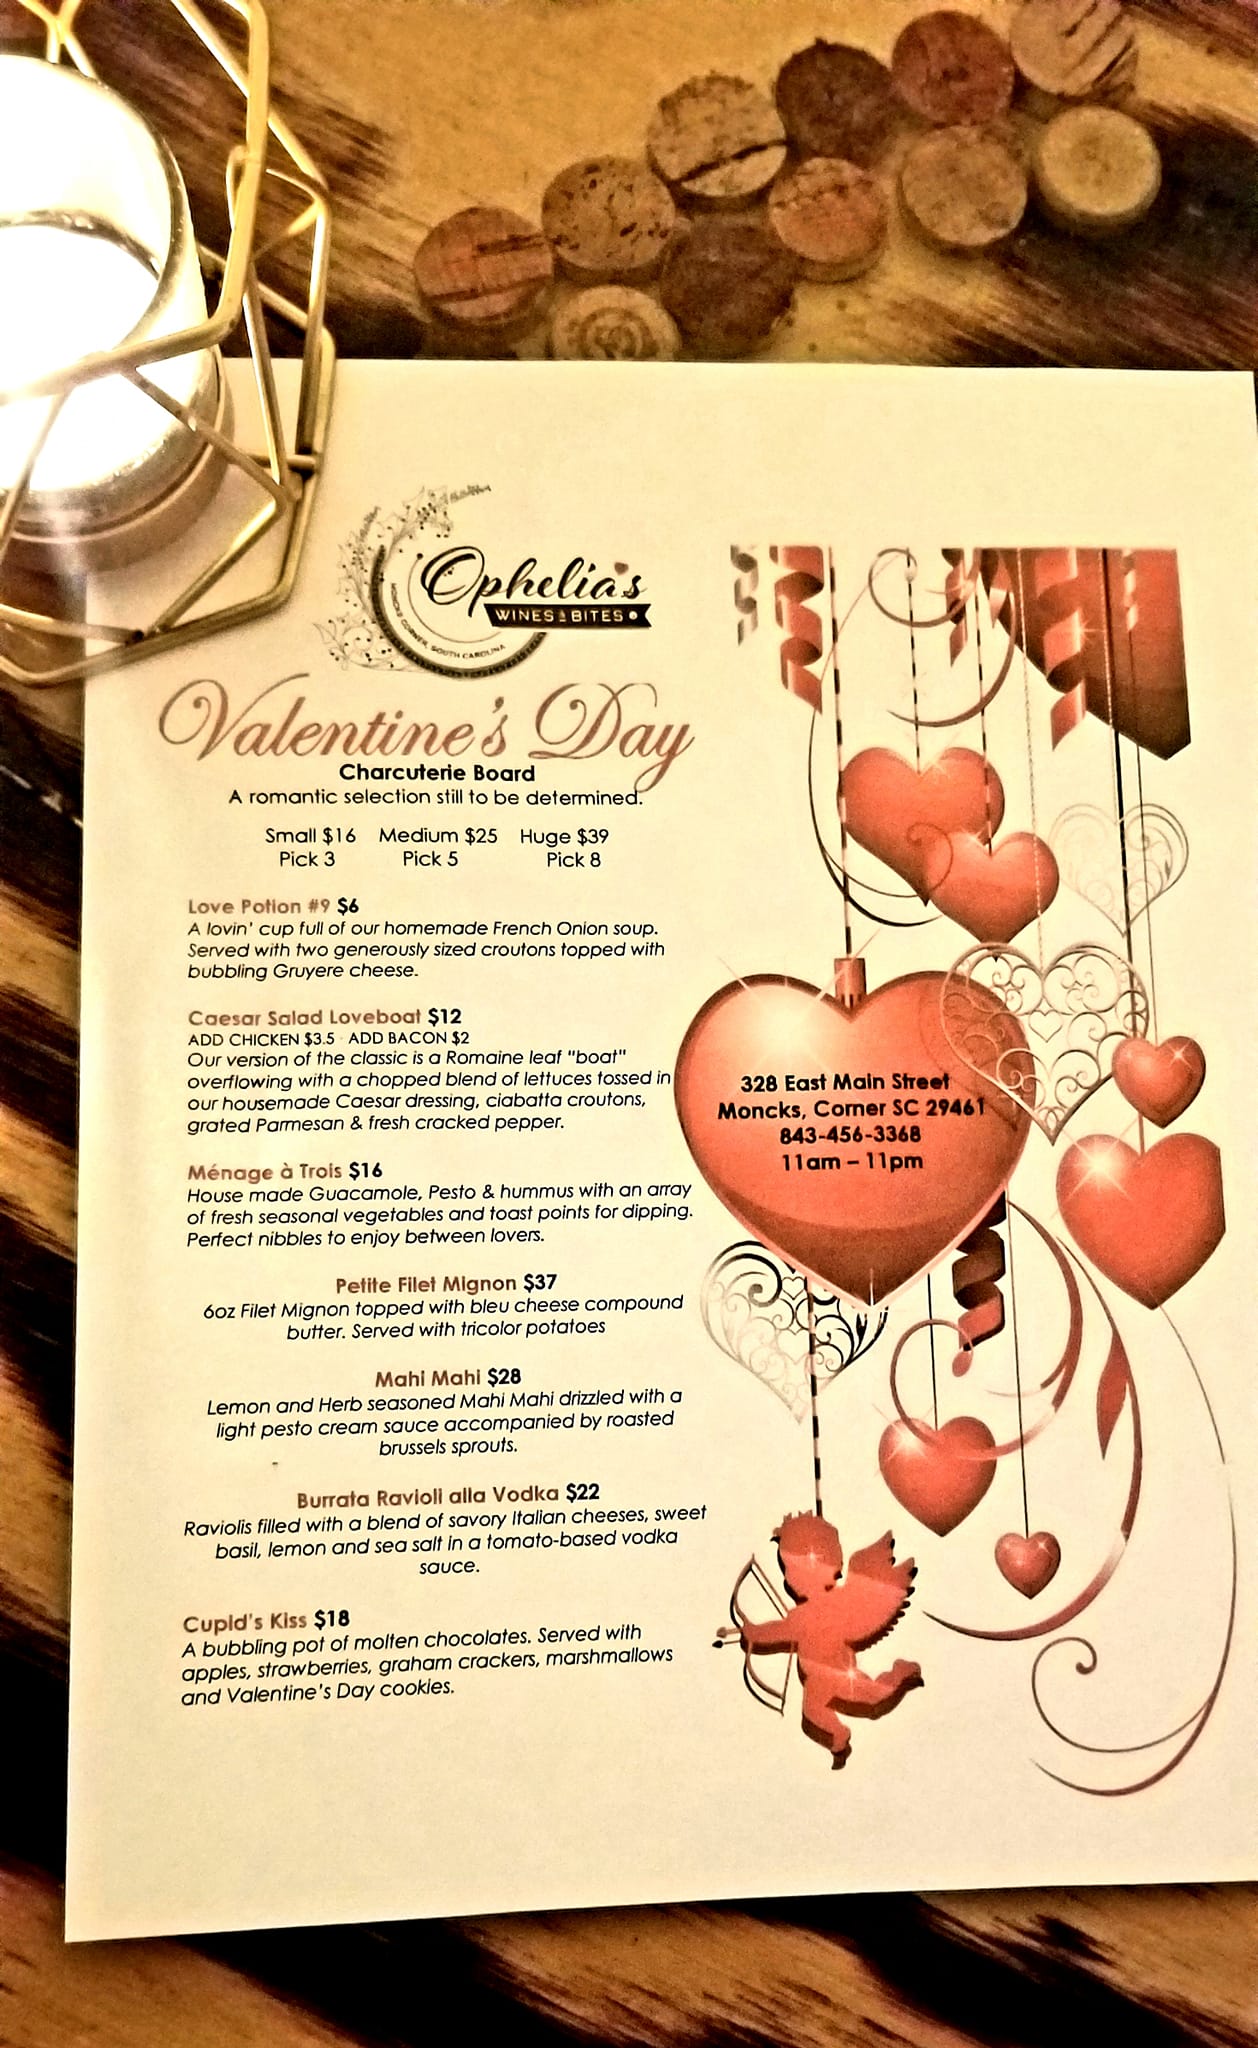 Ophelia's
WINES & BITES
MONCKS CORNER, SOUTH CAROLINA
Valentine's Day
Charcuterie Board
A romantic selection still to be determined.
Small $16 Medium $25 Huge $39
Pick 3 Pick 5 Pick 8
Love Potion #9 $6
A lovin' cup full of our homemade French Onion soup.
Served with two generously sized croutons topped with
bubbling Gruyere cheese.
Caesar Salad Loveboat $12
ADD CHICKEN $3.5 · ADD BACON $2
Our version of the classic is a Romaine leaf "boat"
overflowing with a chopped blend of lettuces tossed in
our housemade Caesar dressing, ciabatta croutons,
grated Parmesan & fresh cracked pepper.
Ménage à Trois $16
House made Guacamole, Pesto & hummus with an array
of fresh seasonal vegetables and toast points for dipping.
Perfect nibbles to enjoy between lovers.
Petite Filet Mignon $37
6oz Filet Mignon topped with bleu cheese compound
butter. Served with tricolor potatoes
Mahi Mahi $28
Lemon and Herb seasoned Mahi Mahi drizzled with a
light pesto cream sauce accompanied by roasted
brussels sprouts.
Burrata Ravioli alla Vodka $22
Raviolis filled with a blend of savory Italian cheeses, sweet
basil, lemon and sea salt in a tomato-based vodka
sauce.
Cupid's Kiss $18
A bubbling pot of molten chocolates. Served with
apples, strawberries, graham crackers, marshmallows
and Valentine's Day cookies.
328 East Main Street
Moncks, Corner SC 29461
843-456-3368
11am – 11pm